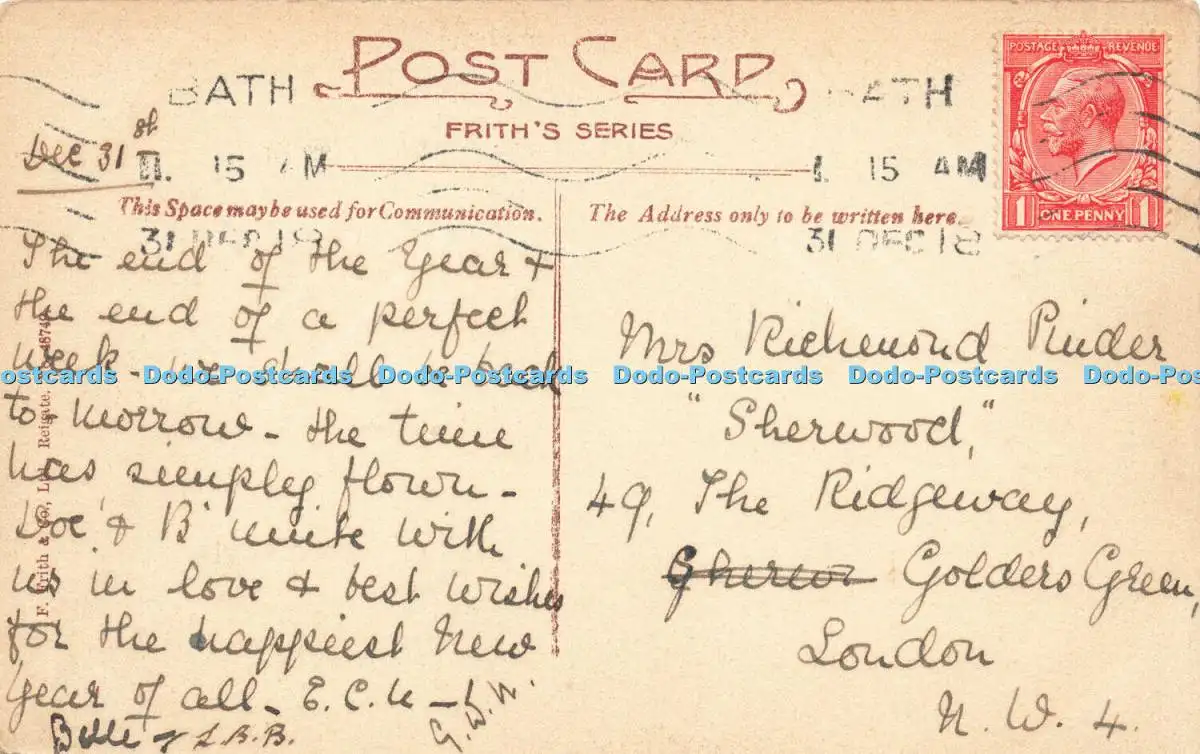 POST CARD
FRITH'S SERIES
BATH
BATH
11. 15 AM
1. 15 AM
31 DEC 18
31 DEC 18
POSTAGE REVENUE
1 ONE PENNY 1
This Space may be used for Communication.
The Address only to be written here.
Dec 31st
The end of the Year +
the end of a perfect
week - we shall be back
to-morrow - the time
has simply flown -
Doc' & B' unite with
us in love & best wishes
for the happiest New
Year of all - E.C.N -
G.W.N.
L.B.B.
Mrs Richmond Pinder
"Sherwood,"
49, The Ridgeway,
Golders Green,
London
N. W. 4.
F. Frith & Co., Reigate. 48740
Dodo-Postcards Dodo-Postcards Dodo-Postcards Dodo-Postcards